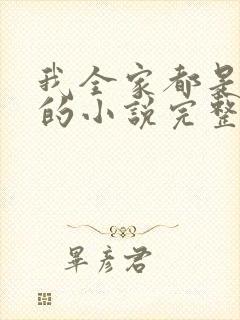 我全家都是
的小說完整
畢彥君